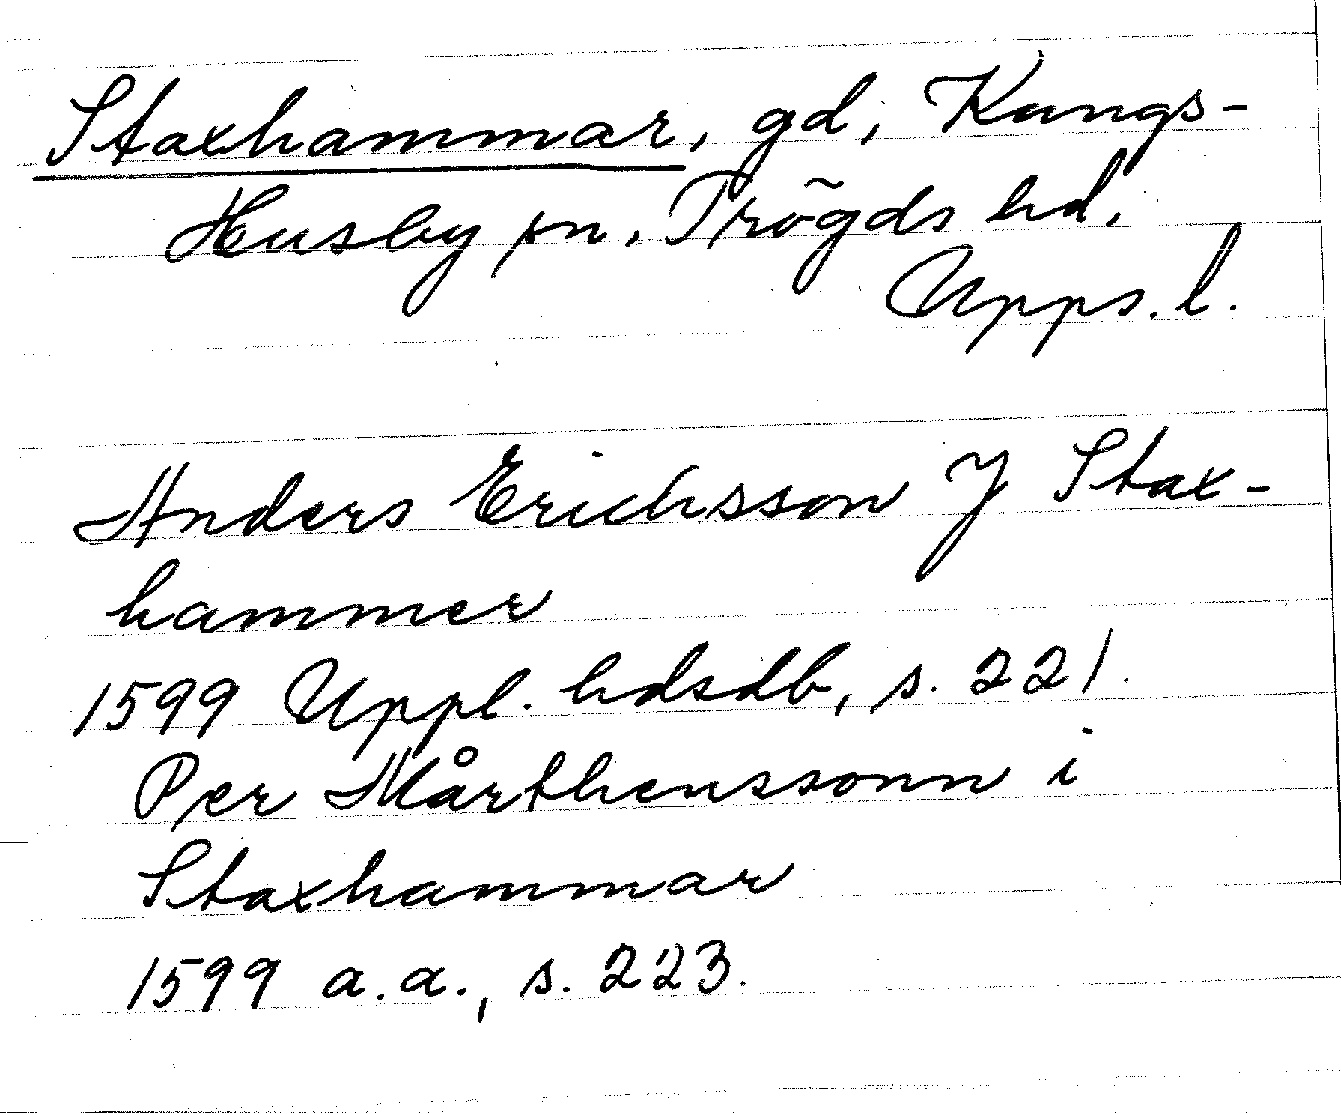 Staxhammar, gd, Kungs-
Husby sn, Trögds hd,
Upps. l.
Anders Erichsson J Stax-
hammer
1599 Uppl. hdsdb, s. 221.
Per Mårthenssonn i
Staxhammar
1599 a.a., s. 223.